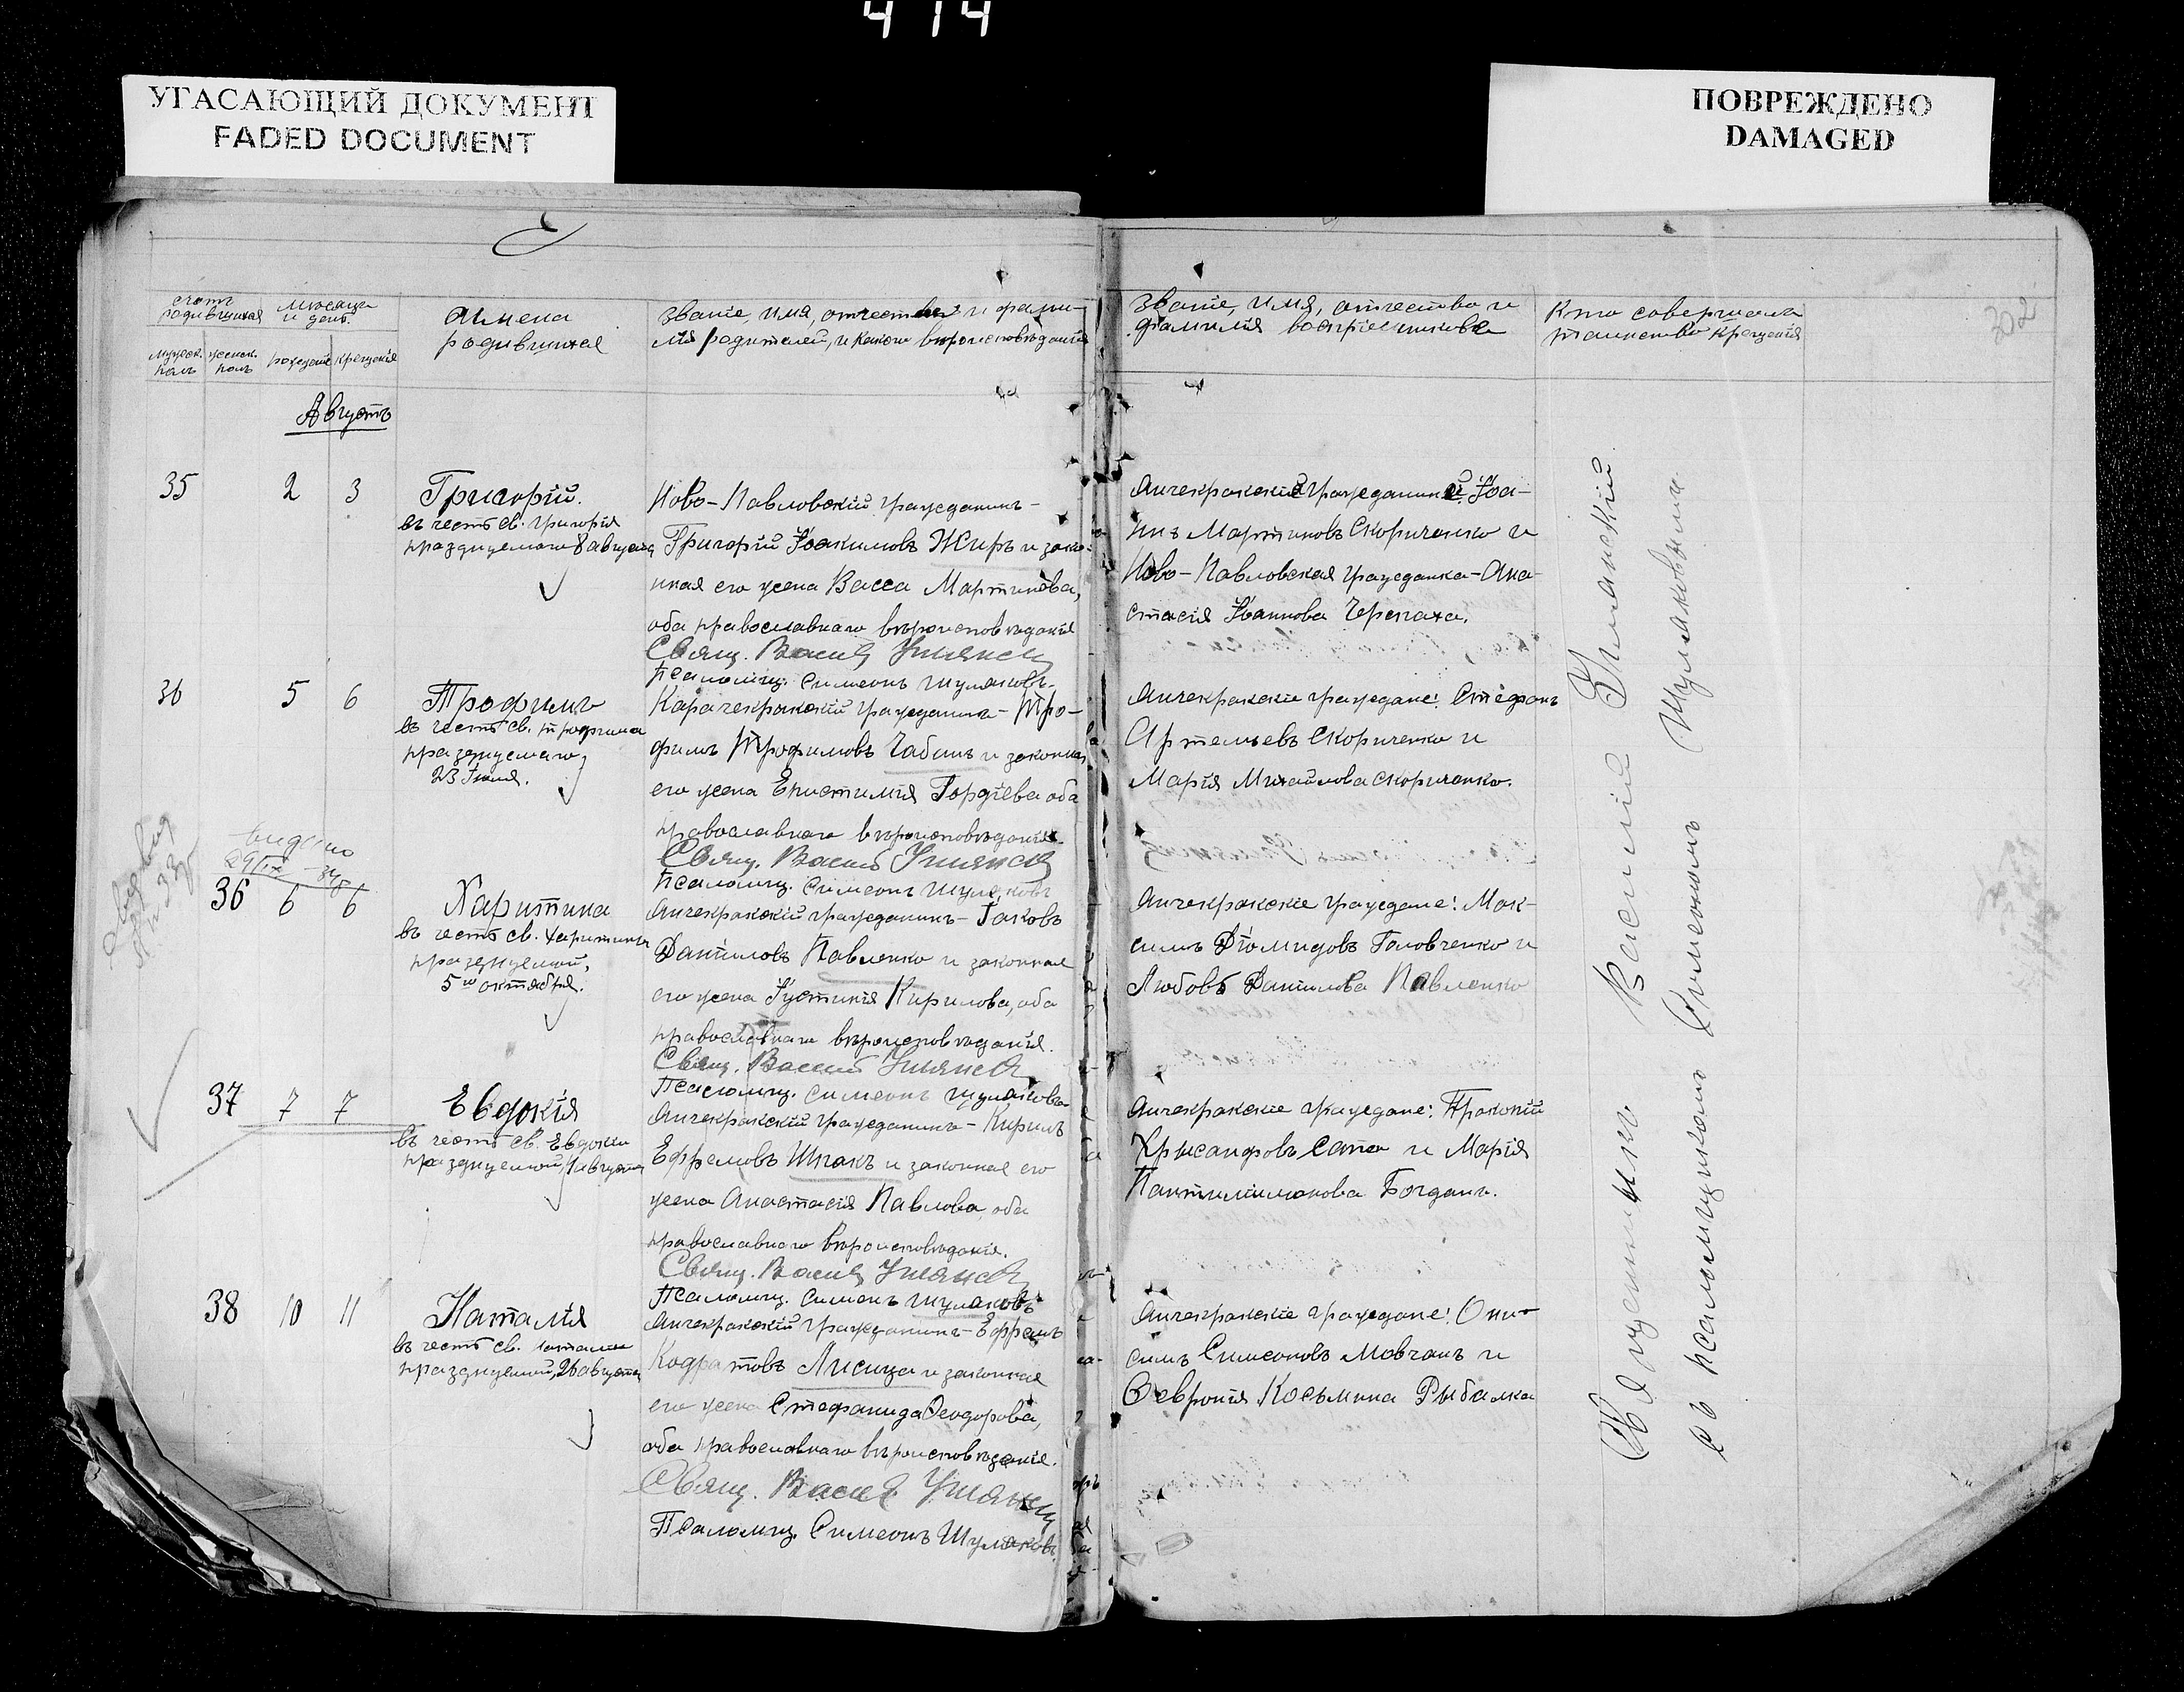 414
УГАСАЮЩИЙ ДОКУМЕНТ
FADED DOCUMENT
ПОВРЕЖДЕНО
DAMAGED
302
счетъ родившихся
мѣсяцъ и день
мужеск. полъ
женск. полъ
рожденія
крещенія
Имена
родившихся
Званіе, имя, отчество и фами-
лія родителей, и какого вѣроисповѣданія
Званіе, имя, отчество и
фамилія воспріемниковъ
Кто совершалъ
таинство крещенія
Августъ
35 2 3
Григорій.
въ честь св. Григорія
празднуемаго 8 августа
Ново-Павловскій гражданинъ-
Григорій Іоакимовъ Жиръ и зако-
нная его жена Васса Мартинова,
оба православнаго вѣроисповѣданія
Свящ. Василій Уманскій
Псаломщ. Симеонъ Шулаковъ.
Анчекракскій гражданинъ Іоа-
ннъ Мартиновъ Скориченко и
Ново-Павловская гражданка-Ана-
стасія Іоаннова Черепаха.
36 5 6
Трофимъ
въ честь св. Трофима
празднуемаго
23 Іюля.
Карачекракскій гражданинъ-Тро-
фимъ Трофимовъ Чабанъ и законная
его жена Епистимія Гордіева оба
православнаго вѣроисповѣданія.
Свящ. Василій Уманскій
Псаломщ. Симеонъ Шулаковъ
Анчекракскіе граждане: Стефанъ
Артемьевъ Скориченко и
Марія Михайлова Скориченко.
видано
29/IX
36 6 6
Харитина
въ честь св. Харитины
празднуемой,
5го октября.
Анчекракскій гражданинъ-Іаковъ
Даніиловъ Павленко и законная
его жена Іустинія Кирилова, оба
православнаго вѣроисповѣданія.
Свящ. Василій Уманскій
Псаломщ. Симеонъ Шулаковъ
Анчекракскіе граждане: Мак-
симъ Діомидовъ Головченко и
Любовь Даніилова Павленко
37 7 7
Евдокія
въ честь св. Евдокіи
празднуемой, 4 августа
Анчекракскій гражданинъ-Кирилъ
Ефремовъ Шпакъ и законная его
жена Анастасія Павлова, оба
православнаго вѣроисповѣданія.
Свящ. Василій Уманскій
Псаломщ. Симеонъ Шулаковъ
Анчекракскіе граждане: Прокопій
Хрисанфовъ Сапа и Марія
Пантилимонова Богданъ.
38 10 11
Наталія
въ честь св. Наталіи
празднуемой, 26 августа
Анчекракскій гражданинъ-Ефремъ
Кодратовъ Лисица и законная
его жена Стефанида Ѳеодорова,
оба православнаго вѣроисповѣданія.
Свящ. Василій Уманскій
Псаломщ. Симеонъ Шулаковъ.
Анчекракскіе граждане: Они-
симъ Симеоновъ Мовчанъ и
Ѳевронія Косьмина Рыбалка
Священникъ Василій Уманскій
съ псаломщикомъ Симеономъ Шулаковымъ